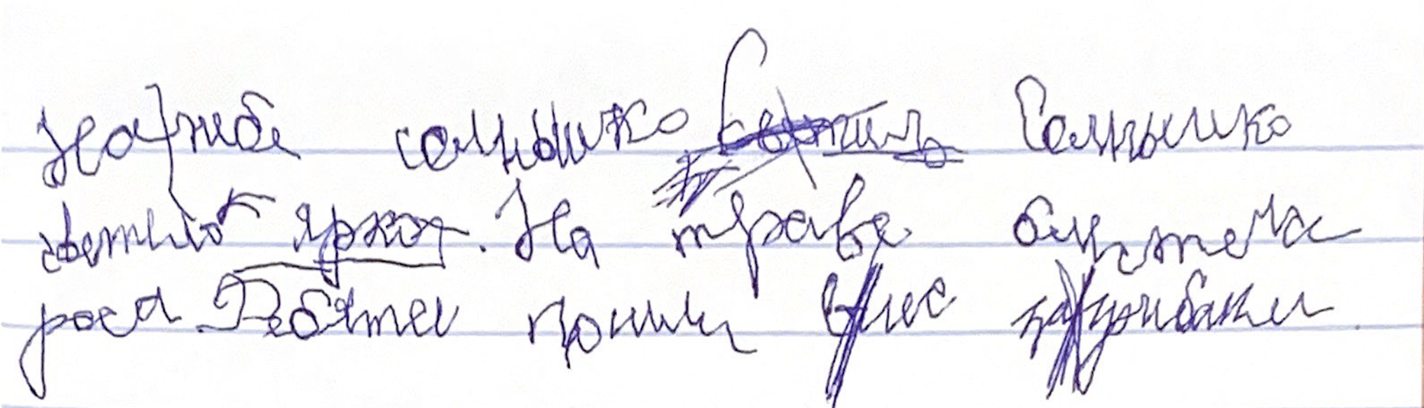 На небе солнышко Солнышко
светило ярко. На траве блистела
роса Ребята пошли в лес за грибами